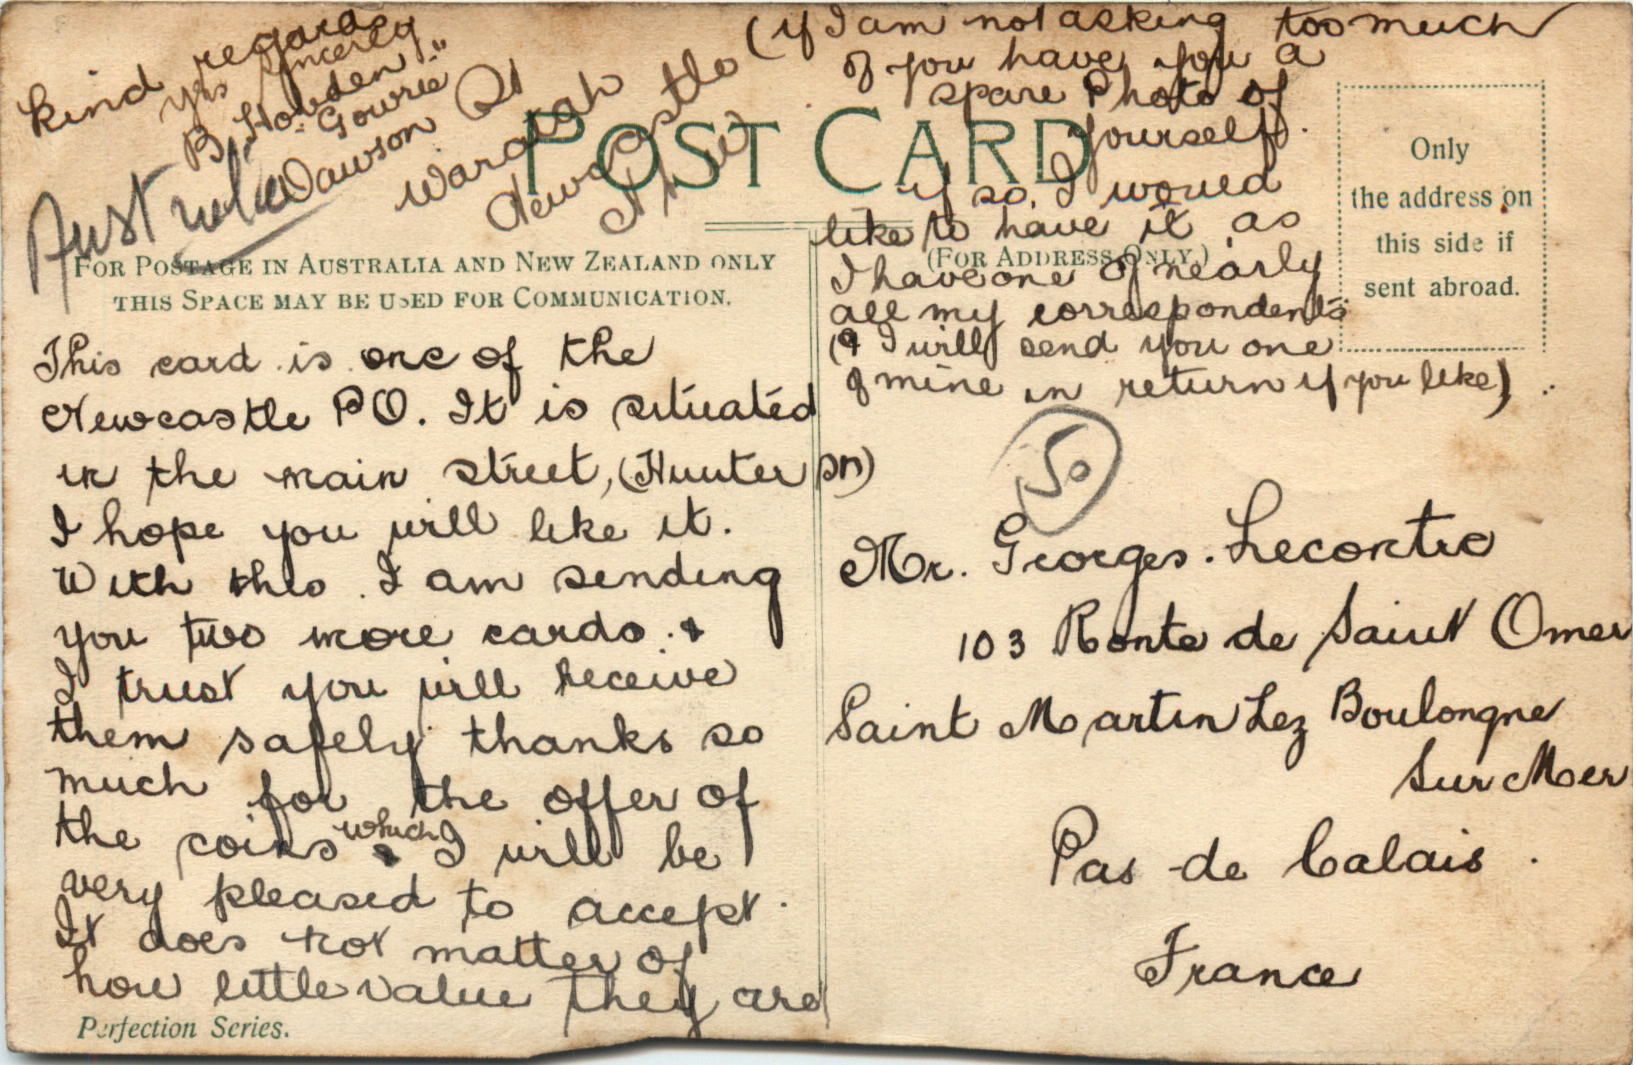 POST CARD
FOR POSTAGE IN AUSTRALIA AND NEW ZEALAND ONLY
THIS SPACE MAY BE USED FOR COMMUNICATION.
(FOR ADDRESS ONLY.)
Only
the address on
this side if
sent abroad.
This card is one of the
Newcastle PO. It is situated
in the main street, (Hunter St)
I hope you will like it.
With this I am sending
you two more cards &
I trust you will receive
them safely thanks so
much for the offer of
the coins which I will be
very pleased to accept.
It does not matter of
how little value they are
(if I am not asking too much
of you have you a
spare Photo of
yourself.
if so, I would
like to have it as
I have one of nearly
all my correspondents
(& I will send you one
of mine in return if you like)
kind regards
yrs sincerely
B. Howden
"Gowrie"
Dawson St
Waratah
Newcastle
NSW
Australia
50
Mr. Georges Lecontre
103 Ronte de Saint Omer
Saint Martin Lez Boulongne
Sur Mer
Pas de Calais.
France
Perfection Series.